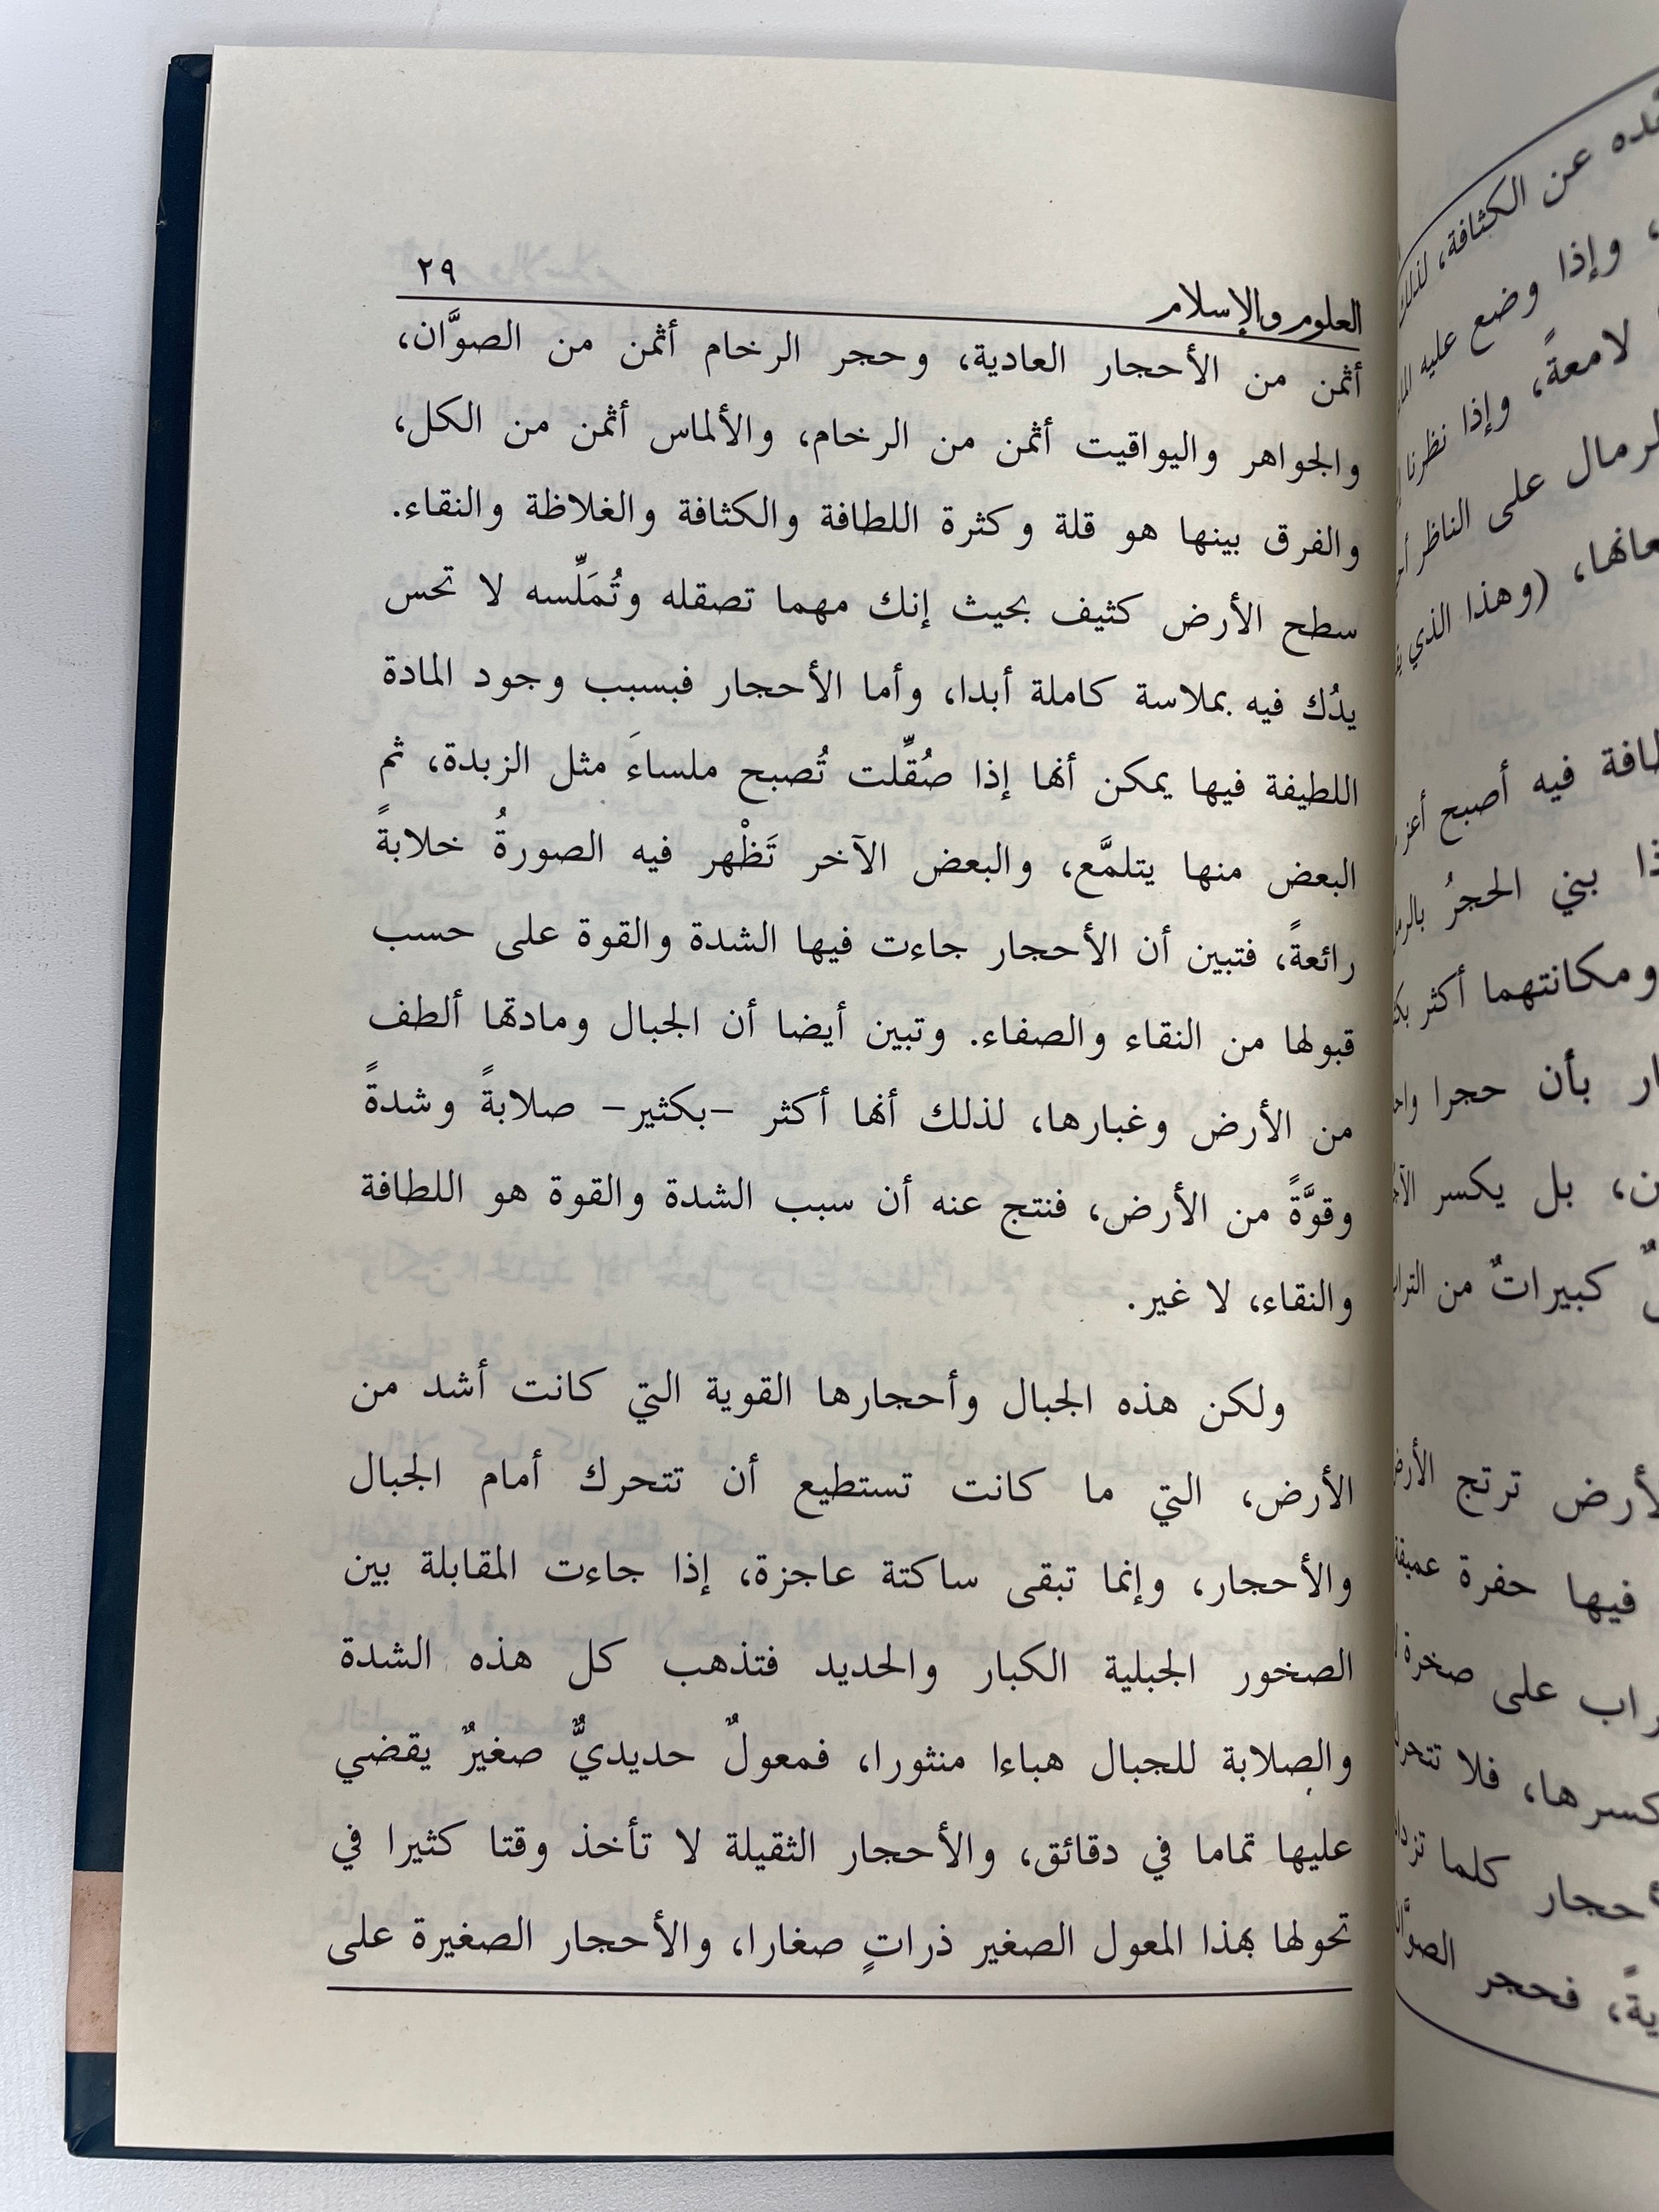 العلوم والإسلام ٢٩
أثمن من الأحجار العادية، وحجر الرخام أثمن من الصوَّان،
والجواهر واليواقيت أثمن من الرخام، والألماس أثمن من الكل،
والفرق بينها هو قلة وكثرة اللطافة والكثافة والغلاظة والنقاء.
سطح الأرض كثيف بحيث إنك مهما تصقله وتُمَلِّسه لا تحس
يدُك فيه بملاسة كاملة أبدا، وأما الأحجار فبسبب وجود المادة
اللطيفة فيها يمكن أنها إذا صُقِّلت تُصبح ملساءَ مثل الزبدة، ثم
البعض منها يتلمَّع، والبعض الآخر تَظْهر فيه الصورةُ خلابةً
رائعةً، فتبين أن الأحجار جاءت فيها الشدة والقوة على حسب
قبولها من النقاء والصفاء. وتبين أيضا أن الجبال ومادتها ألطف
من الأرض وغبارها، لذلك أنها أكثر –بكثير– صلابةً وشدةً
وقوَّةً من الأرض، فنتج عنه أن سبب الشدة والقوة هو اللطافة
والنقاء، لا غير.
ولكن هذه الجبال وأحجارها القوية التي كانت أشد من
الأرض، التي ما كانت تستطيع أن تتحرك أمام الجبال
والأحجار، وإنما تبقى ساكتة عاجزة، إذا جاءت المقابلة بين
الصخور الجبلية الكبار والحديد فتذهب كل هذه الشدة
والصلابة للجبال هباءا منثورا، فمعولٌ حديديٌّ صغيرٌ يقضي
عليها تماما في دقائق، والأحجار الثقيلة لا تأخذ وقتا كثيرا في
تحولها بهذا المعول الصغير ذراتٍ صغارا، والأحجار الصغيرة على
عن الكثافة، لذلك
، وإذا وضع عليه
لامعةً، وإذا نظرنا
على الناظر
، (وهذا الذي
فيه أصبح أعز
بني الحجرُ
ومكانتهما أكثر
بأن حجرا
، بل يكسر
كبيراتٌ من
ترتج
فيها حفرة عميقة
على صخرة
، فلا تتحرك
كلما
، فحجر الصوَّان